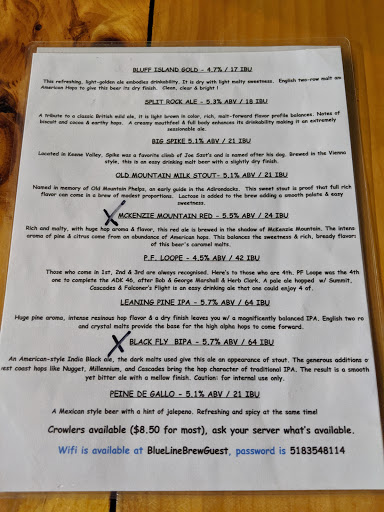 BLUFF ISLAND GOLD - 4.7% / 17 IBU
This refreshing, light-golden ale embodies drinkability. It is dry with light malty sweetness. English two-row malt an
American Hops to give this beer its dry finish. Clean, clear & bright !
SPLIT ROCK ALE - 5.3% ABV / 18 IBU
A tribute to a classic British mild ale, it is light brown in color, rich, malt-forward flavor profile balances. Notes of
biscuit and cocoa & earthy hops. A creamy mouthfeel & full body enhances its drinkability making it an extremely
sessionable ale.
BIG SPIKE 5.1% ABV / 21 IBU
Located in Keene Valley, Spike was a favorite climb of Joe Sast's and is named after his dog. Brewed in the Vienna
style, this is an easy drinking malt beer with a slightly dry finish.
OLD MOUNTAIN MILK STOUT- 5.1% ABV / 21 IBU
Named in memory of Old Mountain Phelps, an early guide in the Adirondacks. This sweet stout is proof that full rich
flavor can come in a brew of modest proportions. Lactose is added to the brew adding a smooth palate & easy
sweetness.
MCKENZIE MOUNTAIN RED - 5.5% ABV / 24 IBU
Rich and malty, with huge hop aroma & flavor, this red ale is brewed in the shadow of McKenzie Mountain. The inten
aroma of pine & citrus come from an abundance of American hops. This balances the sweetness & rich, bready flavors
of this beer's caramel malts.
P.F. LOOPE - 4.5% ABV / 42 IBU
Those who come in 1st, 2nd & 3rd are always recognised. Here's to those who are 4th. PF Loope was the 4th
one to complete the ADK 46, after Bob & George Marshall & Herb Clark. A pale ale hopped w/ Summit,
Cascades & Falconer's Flight is an easy drinking ale that one could enjoy 4 of.
LEANING PINE IPA - 5.7% ABV / 64 IBU
Huge pine aroma, intense resinous hop flavor & a dry finish leaves you w/ a magnificently balanced IPA. English two ro
and crystal malts provide the base for the high alpha hops to come forward.
BLACK FLY BIPA - 5.7% ABV / 64 IBU
An American-style India Black ale, the dark malts used give this ale an appearance of stout. The generous additions o
est coast hops like Nugget, Millennium, and Cascades bring the hop character of traditional IPA. The result is a smooth
yet bitter ale with a mellow finish. Caution: for internal use only.
PEINE DE GALLO - 5.1% ABV / 21 IBU
A Mexican style beer with a hint of jalepeno. Refreshing and spicy at the same time!
Crowlers available ($8.50 for most), ask your server what's available.
Wifi is available at BlueLineBrewGuest, password is 5183548114